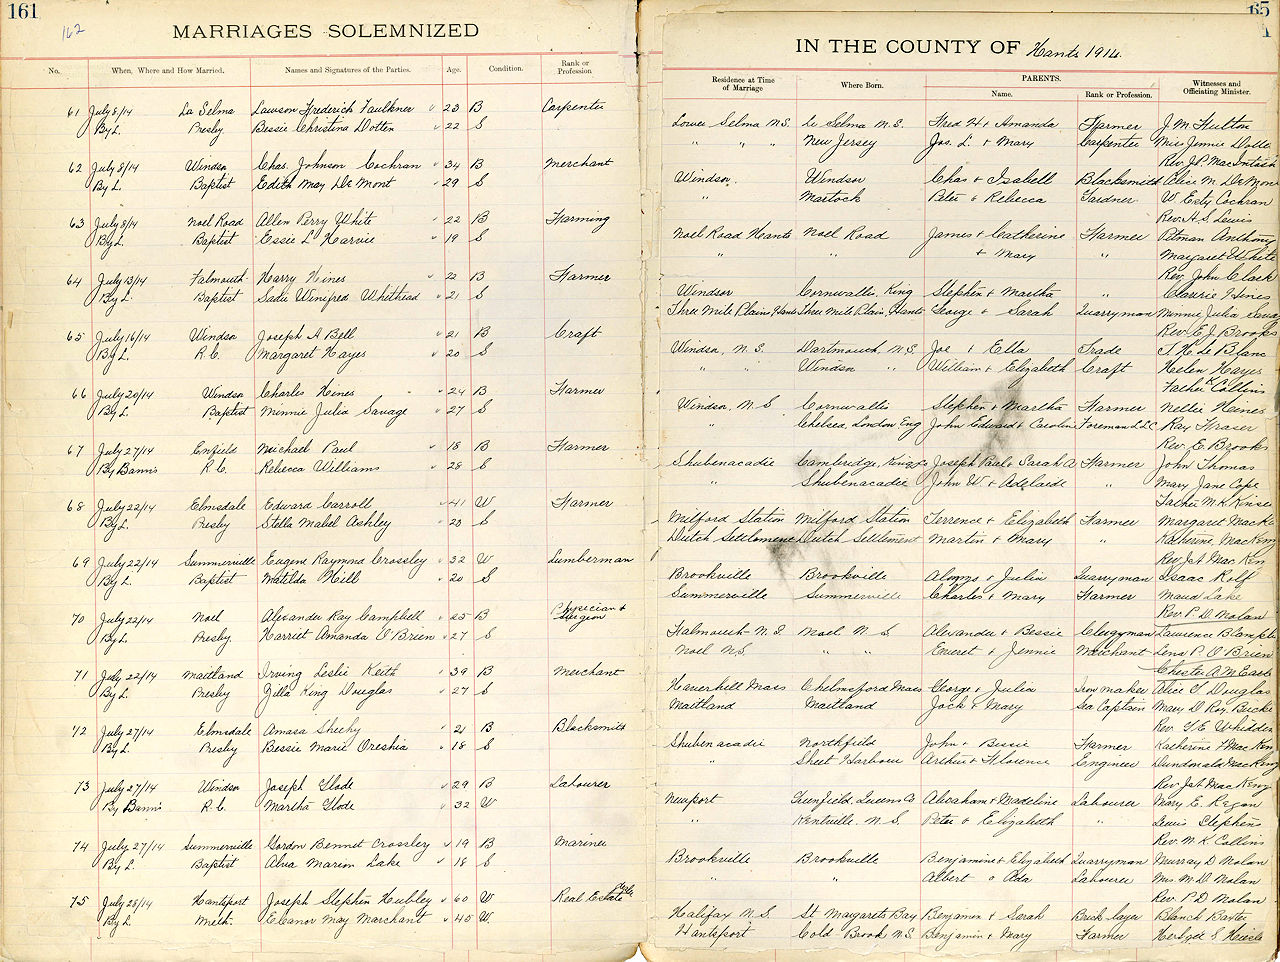 161
162
MARRIAGES SOLEMNIZED
No. When, Where and How Married. Names and Signatures of the Parties. Age. Condition. Rank or Profession
61 July 8/14 Lr Selma Lawson Frederick Faulkner 23 B Carpenter
By L. Presby Bessie Christina Dotten 22 S
62 July 8/14 Windsor Chas. Johnson Cochran 34 B Merchant
By L. Baptist Edith May De Mont 29 S
63 July 8/14 Noel Road Allen Perry White 22 B Farming
By L. Baptist Essie L Harvie 19 S
64 July 13/14 Falmouth Harry Hines 22 B Farmer
By L. Baptist Sadie Winifred Whithead 21 S
65 July 16/14 Windsor Joseph A Bell 21 B Craft
By L. R.C. Margaret Hayes 20 S
66 July 20/14 Windsor Charles Hines 24 B Farmer
By L. Baptist Minnie Julia Savage 27 S
67 July 27/14 Enfield Michael Paul 18 B Farmer
By Banns R.C. Rebecca Williams 28 S
68 July 22/14 Elmsdale Edward Carroll 41 W Farmer
By L. Presby Stella Mabel Ashley 20 S
69 July 22/14 Summerville Eugene Raymond Crossley 32 W Lumberman
By L. Baptist Matilda Hill 20 S
70 July 22/14 Noel Alexander Ray Campbell 25 B Physician & Surgeon
By L. Presby. Harriet Amanda O'Brien 27 S
71 July 22/14 Maitland Irving Leslie Keith 39 B Merchant
By L. Presby Zilla King Douglas 27 S
72 July 27/14 Elmsdale Amasa Sheehy 21 B Blacksmith
By L. Presby Bessie Marie Oreshia 18 S
73 July 27/14 Windsor Joseph Glode 29 B Labourer
By Banns R.C. Martha Glode 32 W
74 July 27/14 Summerville Gordon Bennet Crossley 19 B Mariner
By L. Baptist Alva Marion Lake 18 S
75 July 28/14 Hantsport Joseph Stephen Hubley 60 W Real Estate
By L. Meth. Eleanor May Marchant 40 W
65
IN THE COUNTY OF Hants 1914.
Residence at Time of Marriage Where Born. PARENTS. Name. Rank or Profession. Witnesses and Officiating Minister.
Lower Selma N.S. Lr Selma N.S. Fred H & Amanda Farmer J. M Hutton
" " " New Jersey Jos. L. & Mary Carpenter Miss Jennie
Rev. J.P. MacIntosh
Windsor. Windsor Chas & Isabell Blacksmith Alice M. DeMont
" Martock Peter & Rebecca Gardner W Esty Cochran
Rev. H.S. Lewis
Noel Road Hants Noel Road James & Catherine Farmer Pitman Anthony
" " & Mary " Margaret White
Rev. John Clark
Windsor Cornwallis, King Stephen & Martha " Clarrie Hines
Three Mile Plains Hants Three Mile Plain, Hants George & Sarah Quarryman Minnie Julia Savage
Rev. E. J. Brooks
Windsor, N.S. Dartmouth, N.S. Joe & Ella Trade J. H. Le Blanc
" " Windsor " William & Elizabeth Craft Helen Hayes
Father Collins
Windsor, N.S. Cornwallis Stephen & Martha Farmer Nellie Hines
" Chelsea, London Eng John Edward & Caroline Foreman Ray Fraser
Rev. E Brooks
Shubenacadie Cambridge, Kings Co Joseph Paul & Sarah A Farmer John Thomas
" Shubenacadie John W. & Adelaide " Mary Jane Cope
Father M.K.
Milford Station Milford Station Terrence & Elizabeth Farmer Margaret
Dutch Settlement Dutch Settlement Martin & Mary " Katherine MacKenzy
Rev. Jas
Brookville Brookville Alonzo & Julia Quarryman Isaac Rolf
Summerville Summerville Charles & Mary Farmer Maud Lake
Rev. P. D Nolan
Falmouth N.S. Noel N.S. Alexander & Bessie Clergyman Lawrence
Noel N.S. " " Everet & Jennie Merchant Lena P. O'Brien
Chester A.M.
Haverhill Mass Chelmsford Mass George & Julia Iron maker Alice G Douglas
Maitland Maitland Jack & Mary Sea Captain Mary D Roy.
Rev. G.E. Whidden
Shubenacadie Northfield John & Bessie Farmer Katherine
" Sheet Harbour Arthur & Florence Engineer Dundonald
Rev. Jas
Newport Greenfield, Queens Co Abraham & Madeline Labourer Mary E. Regan
" Kentville, N.S. Peter & Elizabeth " Lewis Stephens
Rev. M K Collins
Brookville Brookville Benjamine & Elizabeth Quarryman Murray D Nolan
" " Albert & Ada Labourer Mrs. M.D. Nolan
Rev. P.D Nolan
Halifax N.S. St. Margarets Bay Benjamin & Sarah Brick layer Blanch Baxter
Hantsport Cold Brook N.S. Benjamin & Mary Farmer